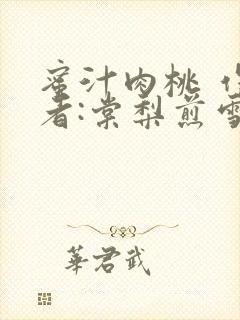 蜜汁肉桃 作
者:棠梨煎雪
華君武